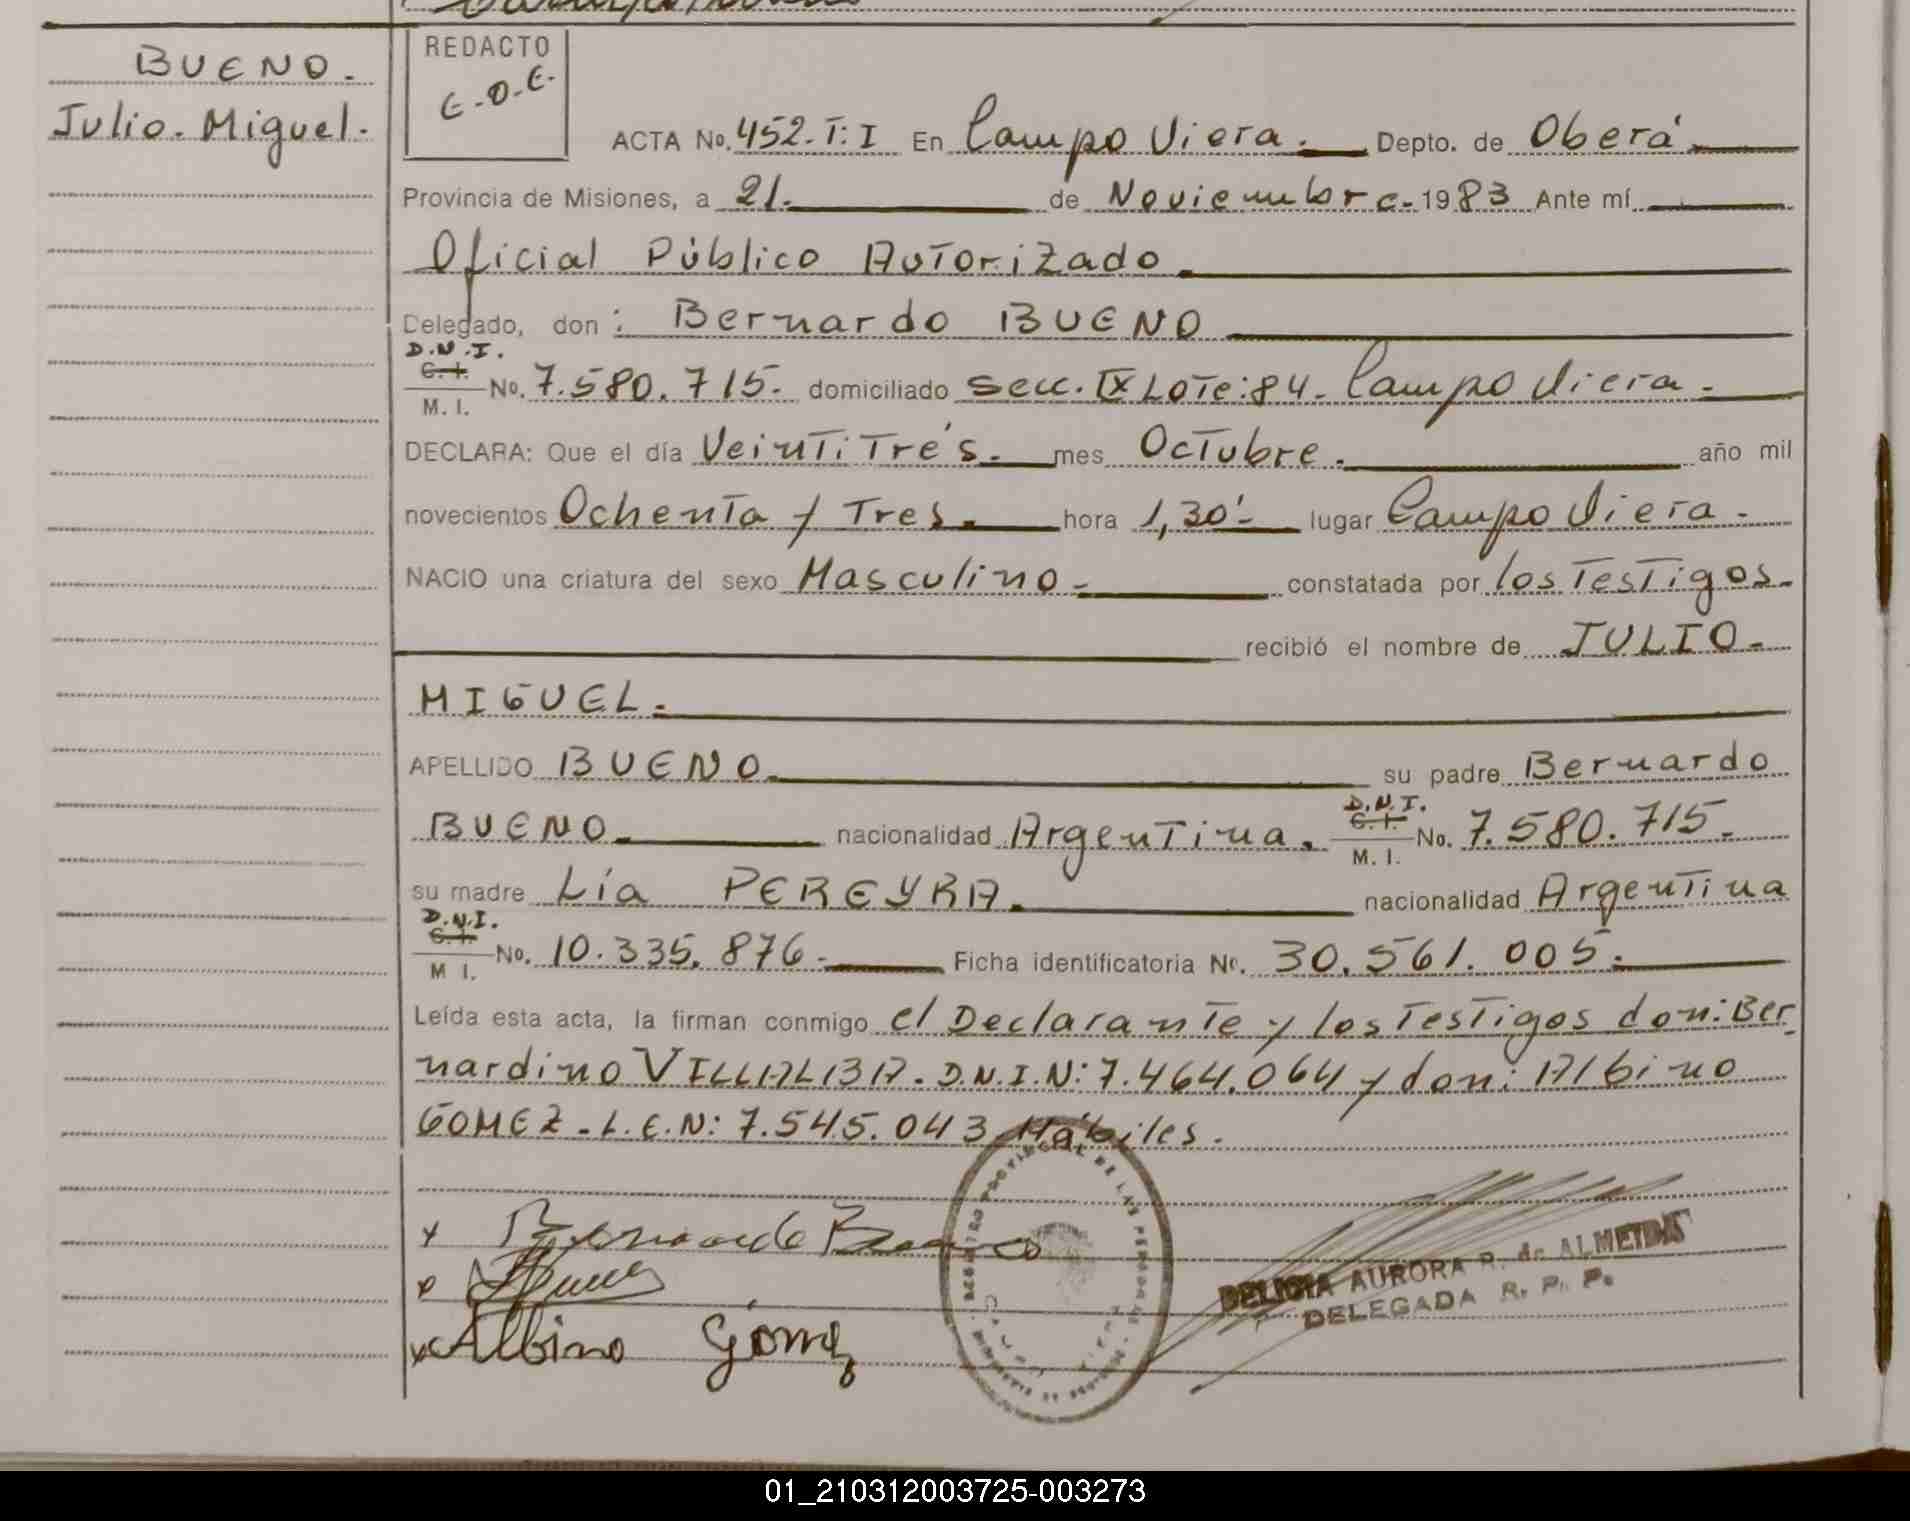 BUENO.
Julio. Miguel.
REDACTO
E.O.E.
ACTA No. 452. T: I En Campo Viera. Depto. de Oberá.
Provincia de Misiones, a 21. de Noviembre. 1983 Ante mí
Oficial Público Autorizado.
Delegado, don: Bernardo BUENO
D.N.I.
C.I. No. 7.580.715. domiciliado Secc. IX Lote: 84. Campo Viera.
M. I.
DECLARA: Que el día Veintitrés. mes Octubre. año mil
novecientos Ochenta y Tres. hora 1,30'- lugar Campo Viera.
NACIO una criatura del sexo Masculino- constatada por los Testigos.
recibió el nombre de JULIO-
MIGUEL.
APELLIDO BUENO. su padre Bernardo
BUENO. nacionalidad Argentina. D.N.I. C.I. No. 7.580.715.
M. I.
su madre Lía PEREYRA. nacionalidad Argentina
D.N.I.
C.I. No. 10.335.876. Ficha identificatoria Nº. 30.561.005.
M I.
Leída esta acta, la firman conmigo el Declarante y los Testigos don: Ber-
nardino VILLALBA. D.N.I.N: 7.464.064 y don: Albino
GOMEZ. L.E.N: 7.545.043 Hábiles.
x Bernardo Bueno
x Albino Gómez
DELICIA AURORA R. de ALMEIDAS
DELEGADA R. P. P.
01_210312003725-003273